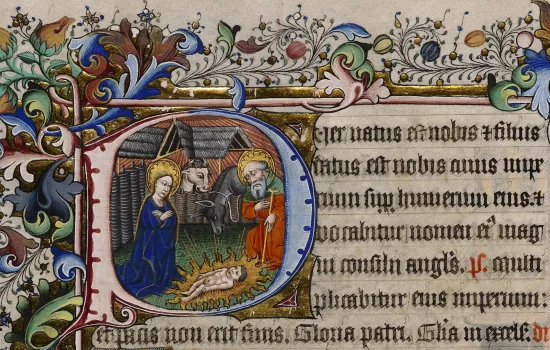 Puer natus est nobis ⁊ filius
datus est nobis cuius impe
rium sup humerum eius. ⁊
vocabitur nomen eiꝰ mag
ni consilii angls. ps. multi
plicabitur eius imperium:
et pacis non erit finis. Gloria patri. Glia in excels.